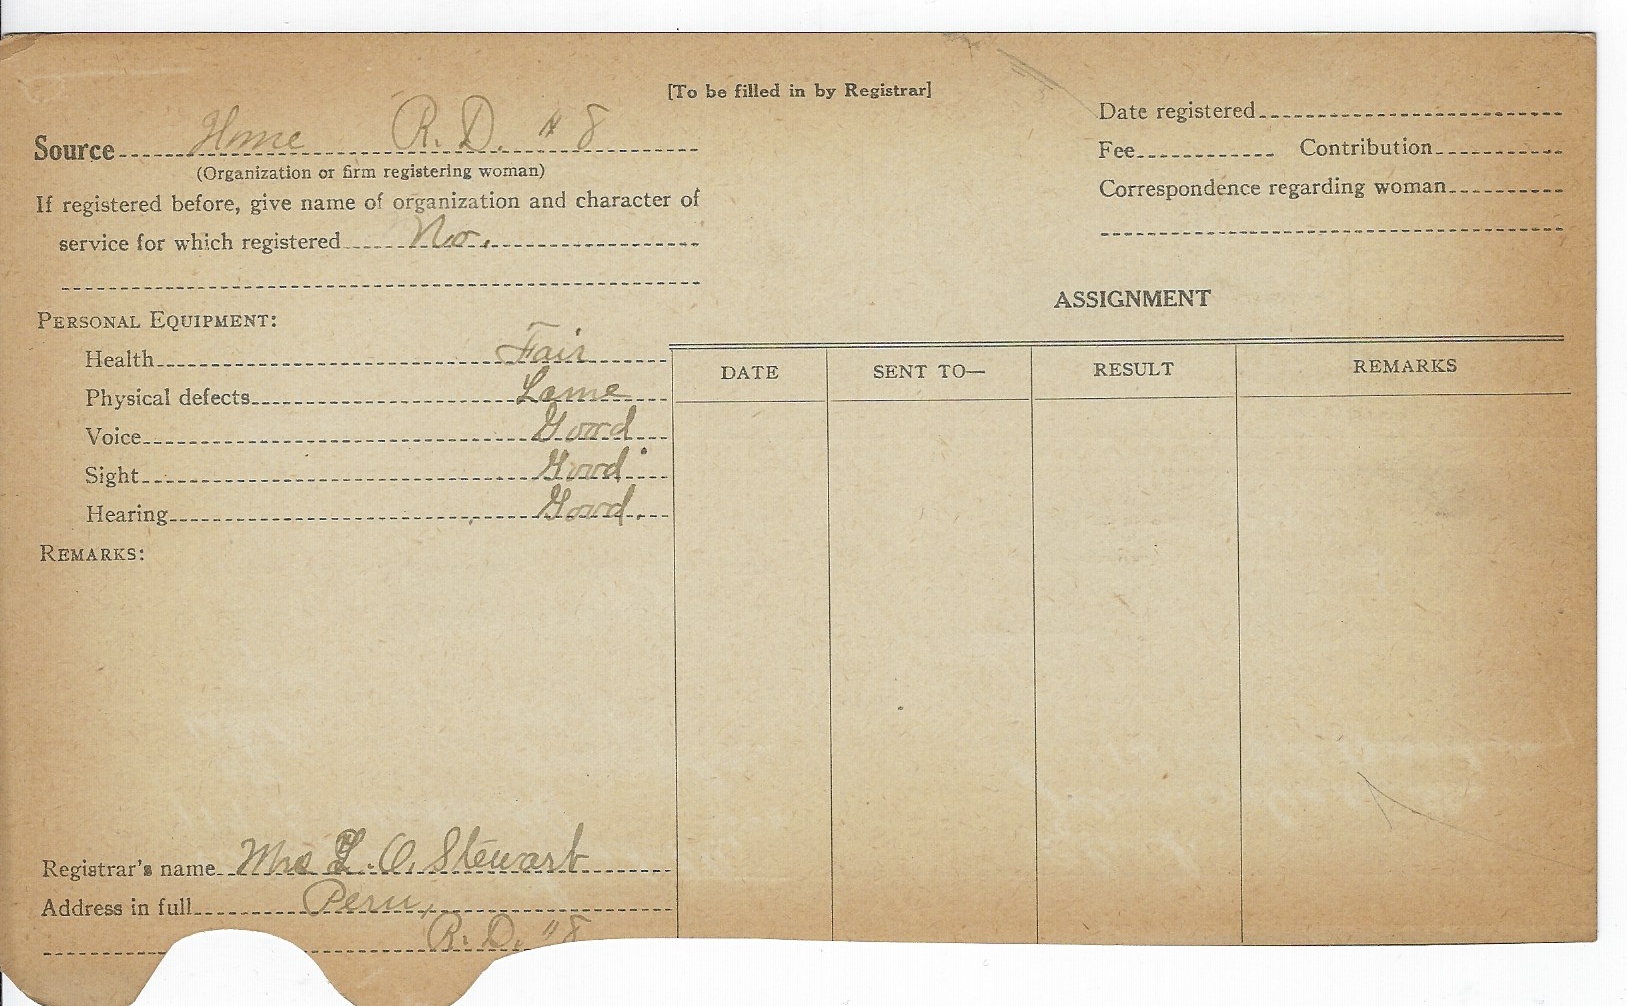 [To be filled in by Registrar]
Source Home R. D. #8
(Organization or firm registering woman)
If registered before, give name of organization and character of
service for which registered No.
PERSONAL EQUIPMENT:
Health Fair
Physical defects Lame
Voice Good
Sight Good
Hearing Good.
REMARKS:
Registrar's name Mrs L. O. Stewart
Address in full Peru,
R. D. "8
Date registered
Fee Contribution
Correspondence regarding woman
ASSIGNMENT
DATE SENT TO— RESULT REMARKS